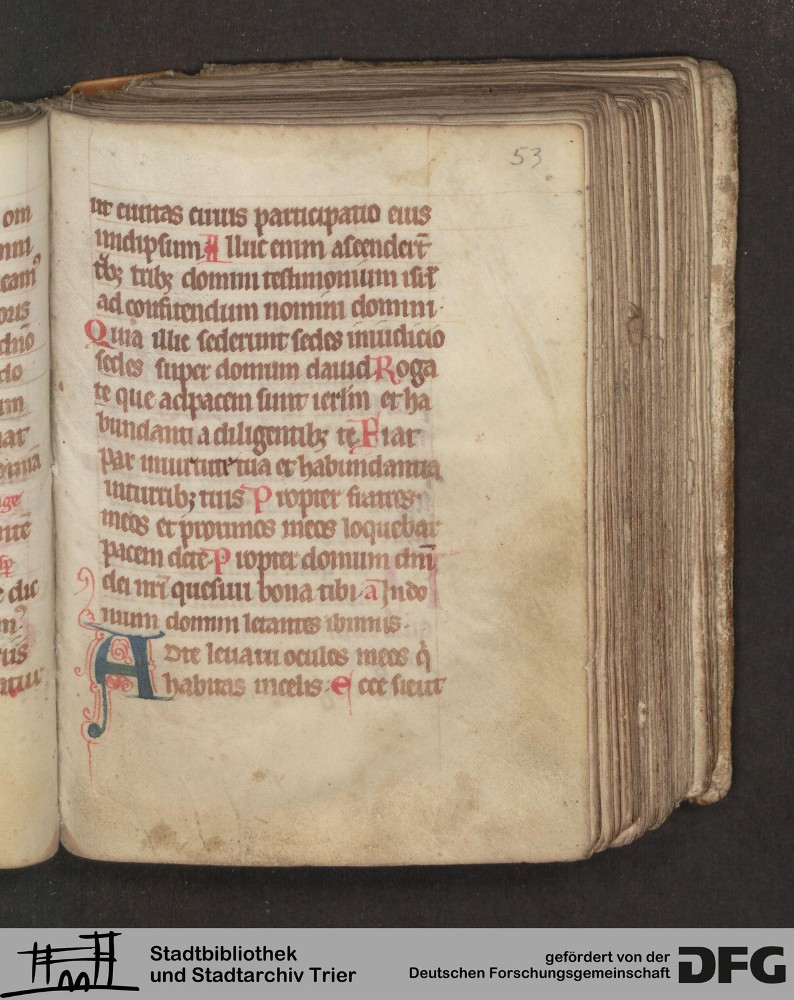 53
ut ciuitas cuius participatio eius
inidipsum Illuc enim ascender̄t
t̾b; trib; domini testimonium isr̄l
ad confitendum nomini domini.
Quia illic sederunt sedes iniudicio
sedes super domum dauid Roga
te que adpacem sunt ierl̄m et ha
bundantia diligentib; te Fiat
pax inuirtute tua et habundantia
inturrib; tuis Propter fratres
meos et proximos meos loquebar
pacem dete Propter domum dn̄i
dei nr̄i quesiui bona tibi. a Indo
mum domini letantes ibimus.
ADte leuaui oculos meos q̇
habitas incelis. ecce sicut
om
eam
dn̄o
do
um
dic
Stadtbibliothek
und Stadtarchiv Trier
gefördert von der
Deutschen Forschungsgemeinschaft
DFG